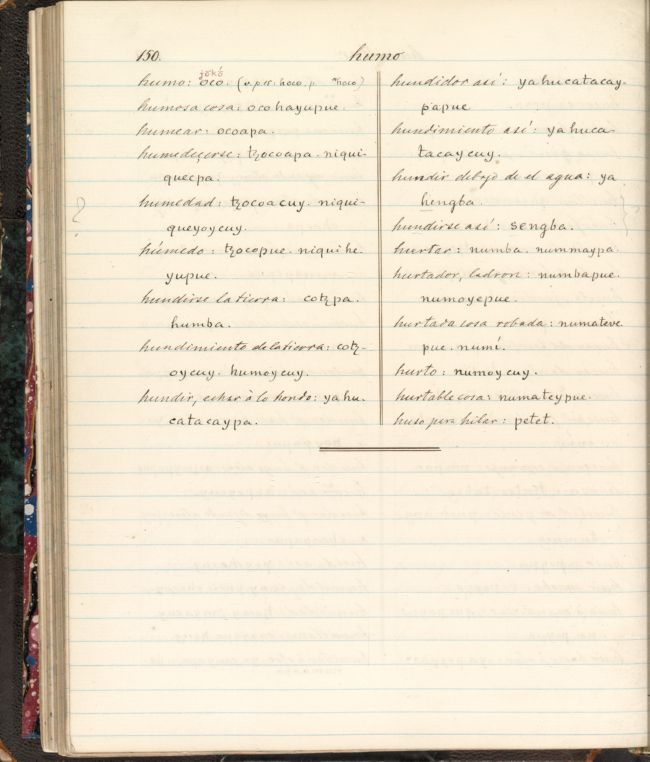 150.
humo
jokó
humo: oco. (v. p 15. hoco p. hoco)
humosa cosa: oco hayupue.
humear: ocoapa.
humedeçerse: tzocoapa. niqui-
quecpa.
humedad: tzocoacuy. niqui-
queyoycuy.
húmedo: tzocopue. niquihe
yupue.
hundirse la tierra: cotzpa.
humba.
hundimiento de la tierra: cotz-
oycuy. humoycuy.
hundir, echar à lo hondo: yahu.
catacaypa.
hundidor así: yahucatacay.
papue
hundimiento así: yahuca
tacaycuy.
hundir debajo de el agua: ya
hengba.
hundirse así: sengba.
hurtar: numba. nummaypa.
hurtador, ladron: numbapue.
numoyepue.
hurtada cosa robada: numateve
pue. numí.
hurto: numoycuy.
hurtable cosa: numateypue.
huso para hilar: petet.